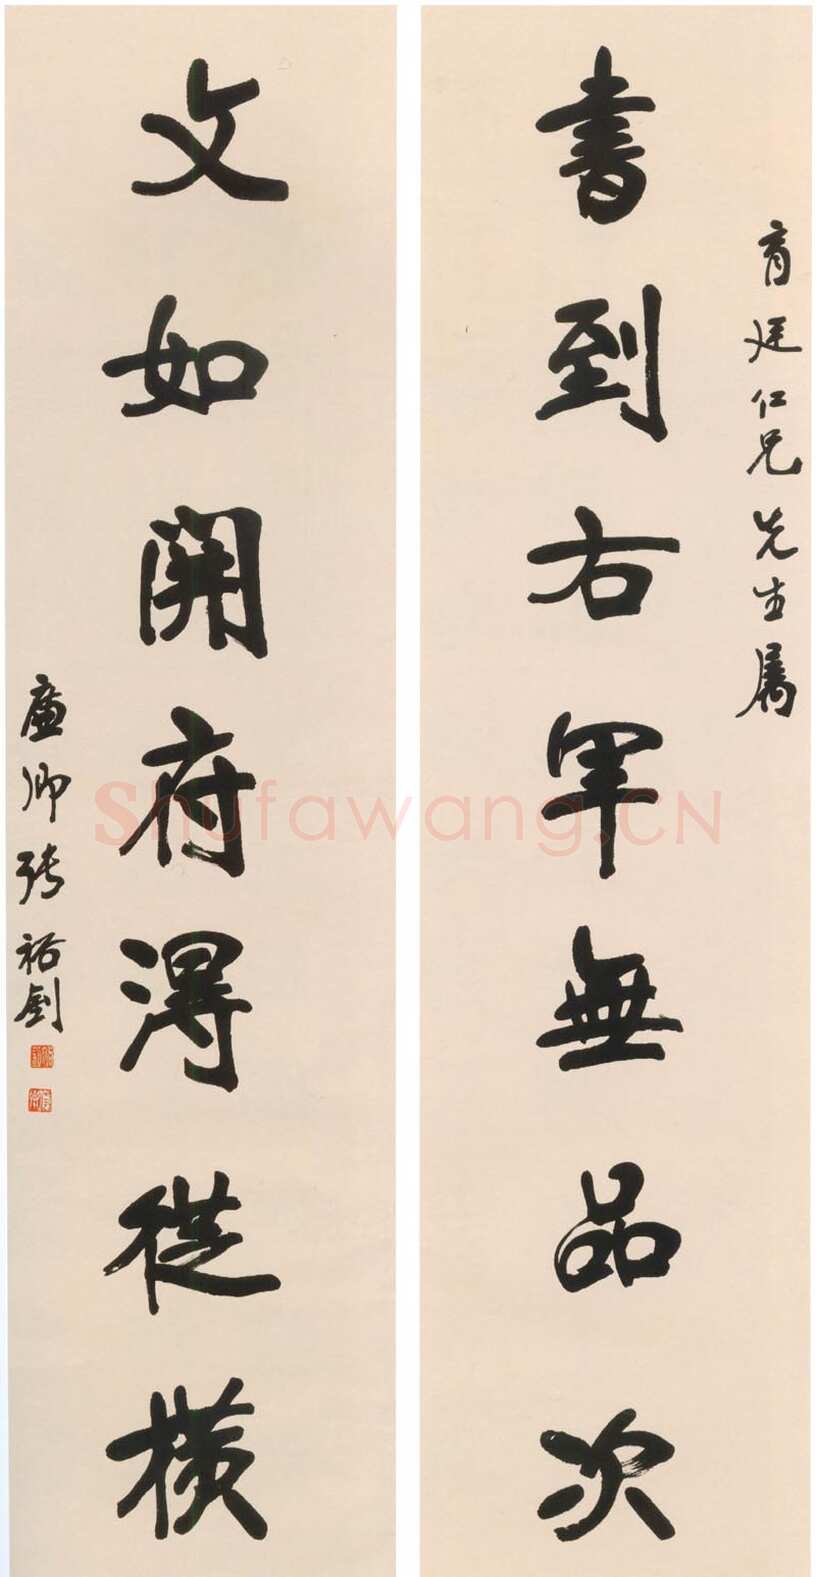 育廷仁兄先生属
書到右軍無品次
文如開府淂從横
廉卿張裕釗
Shufawang.CN